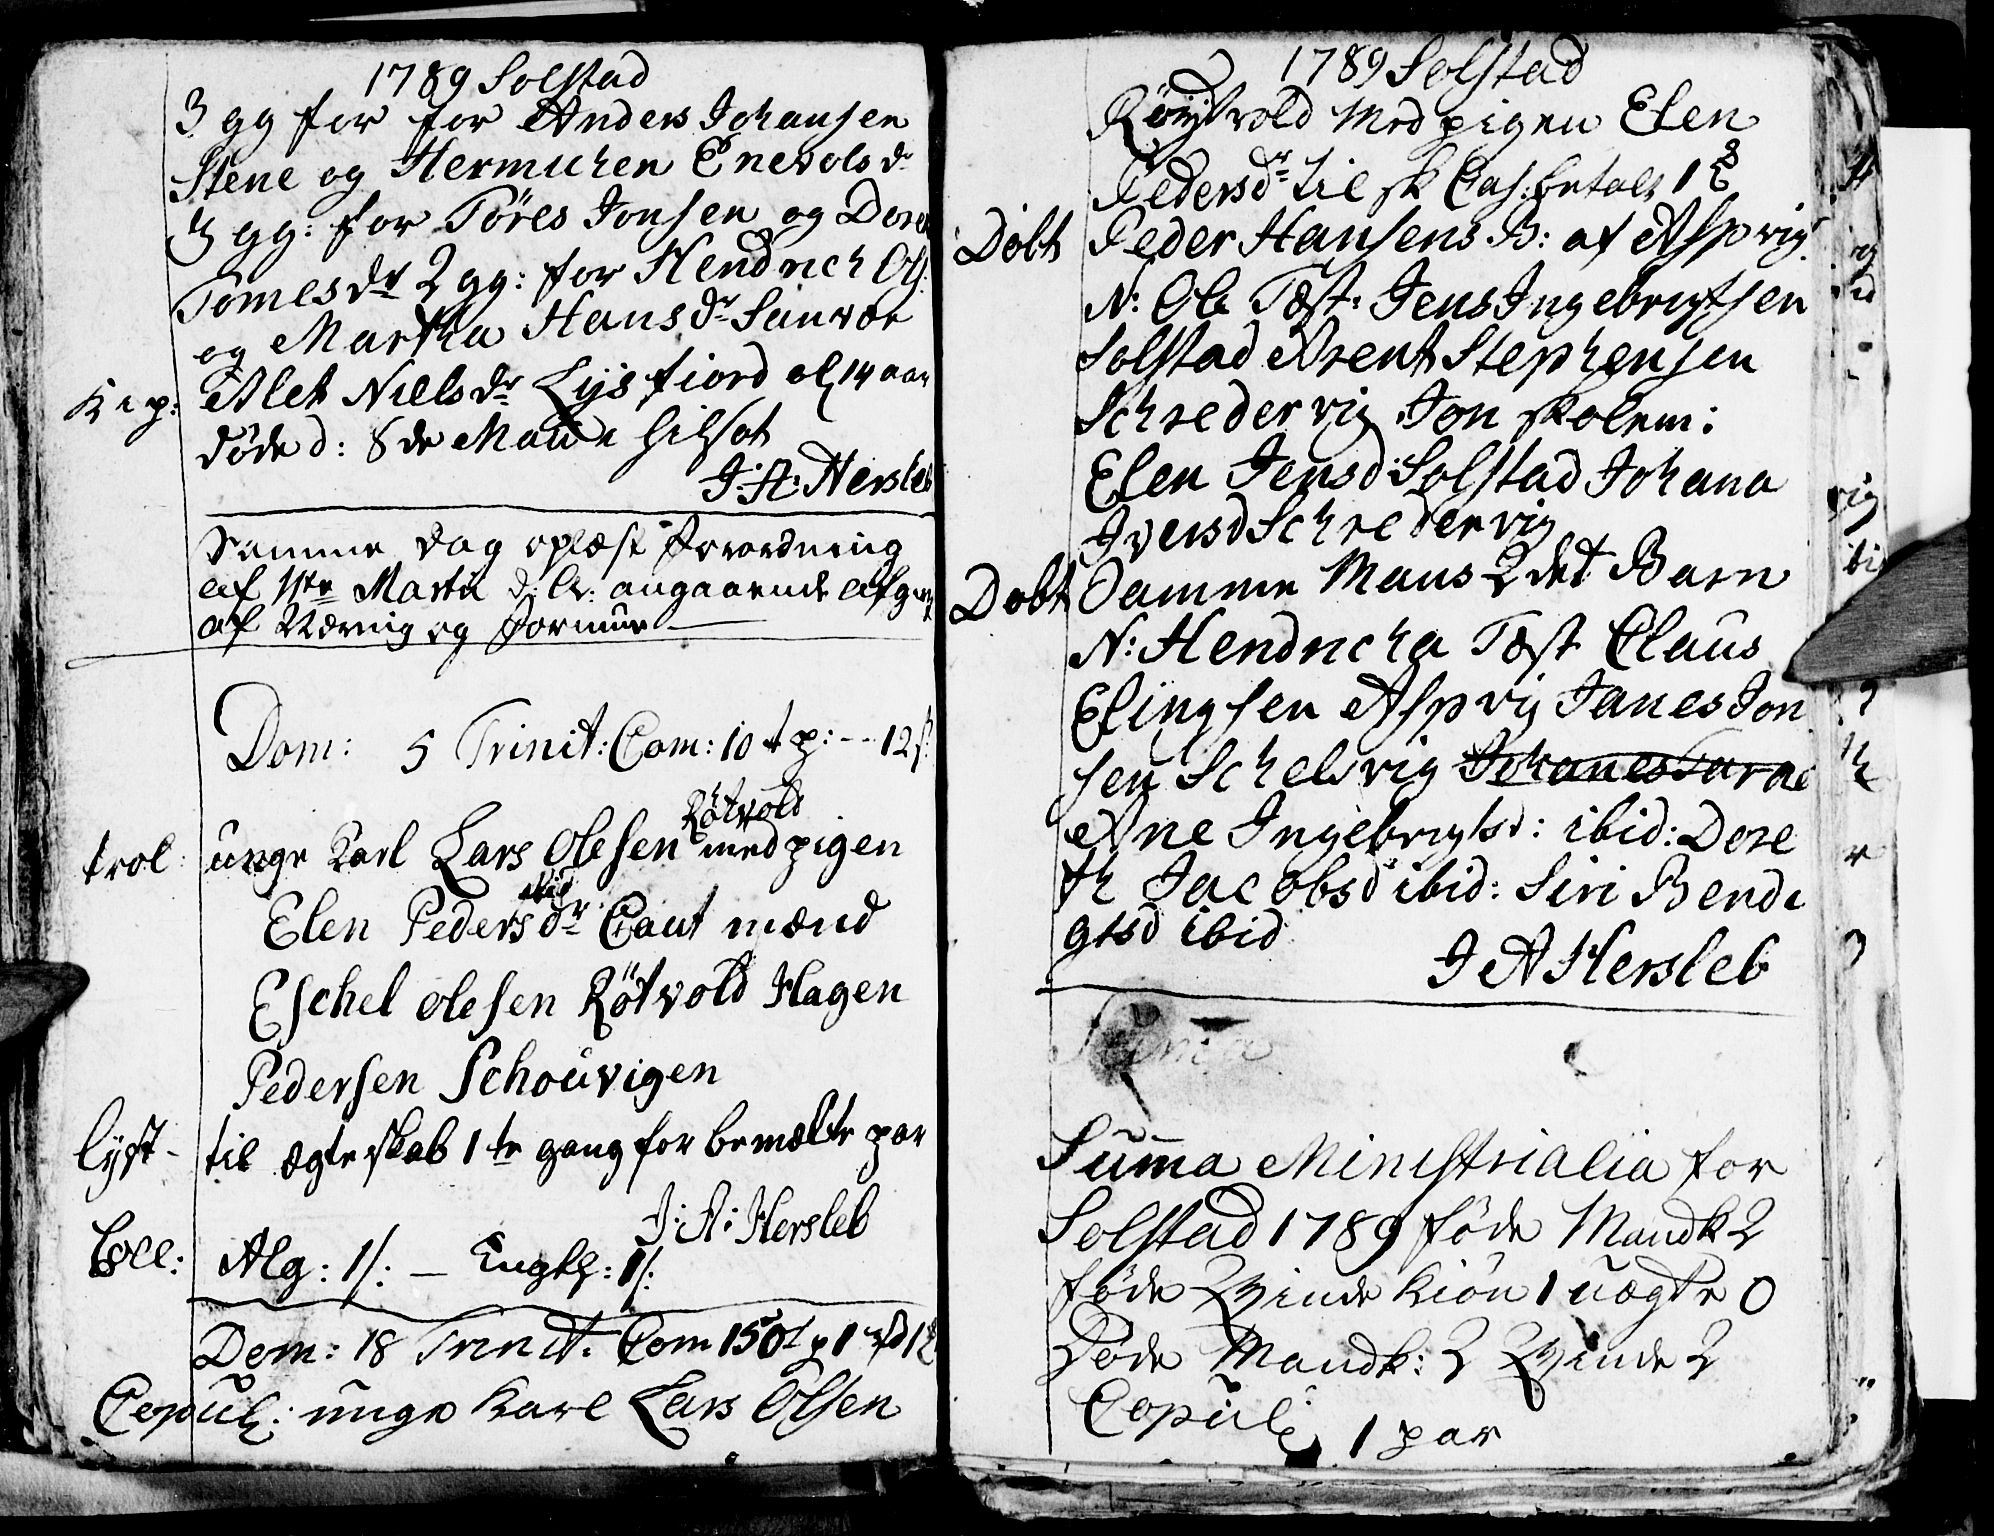 1789 Solstad
3 gg for for Anders Johansen
Stene og Hermichen Enevolsdr
3 gg: for Töres Jonsen og Dore
Tomesdr 2 gg: for Hendrich Ols:
og Martha Hansdr Sauvoe
Alet Nielsdr Lysfiord al 14 aar
døde d: 8de Maii
J: A: Hersleb
Samme dag oplæst Forordning
af 11te Martii d: A: angaaende afg
af Næring og Formue
Dom: 5 Trinit: Com: 10 t p: -- 12 s:
Rötvold
trol: unge Karl Lars Olesen med pigen
ibid
Elen Pedersdr Caut mænd
Eschel olesen Rötvold Hagen
Pedersen Schouvigen
lyst - til ægteskab 1te gang for bemælte par
J: A: Hersleb
Coll: Alg: 1 s: — Ength: 1 s:
Dom: 18 Trinit: Com 150 t p 1
Copul: unge Karl Lars Olsen
1789 Solstad
Röytvold Med pigen Elen
Pedersdr til sk Cas: betalt 1
Döbt Peder Hansens B: af Aspvig
N: Ole Test: Jens Ingebrigtsen
Solstad Arent Stephensen
Schredervig Jon skolem:
Elen Jensd Solstad Johana
Iversd Schredervig
Döbt Samme Mans 2det Barn
N: Hendricha Test Claus
Elingsen Aspvig Janes Jon
sen Schelsvig Johanes
Ane Ingebrigtsd: ibid: Dore
th Jacobsd ibid: Siri Bendi
gtsd ibid
J A Hersleb
Summa Ministrialia for
Solstad 1789 föde Mandk 2
föde Qvinde Kiön 1 uægte 0
Döde Mandk: 2 Qvinde 2
Copuli 1 par